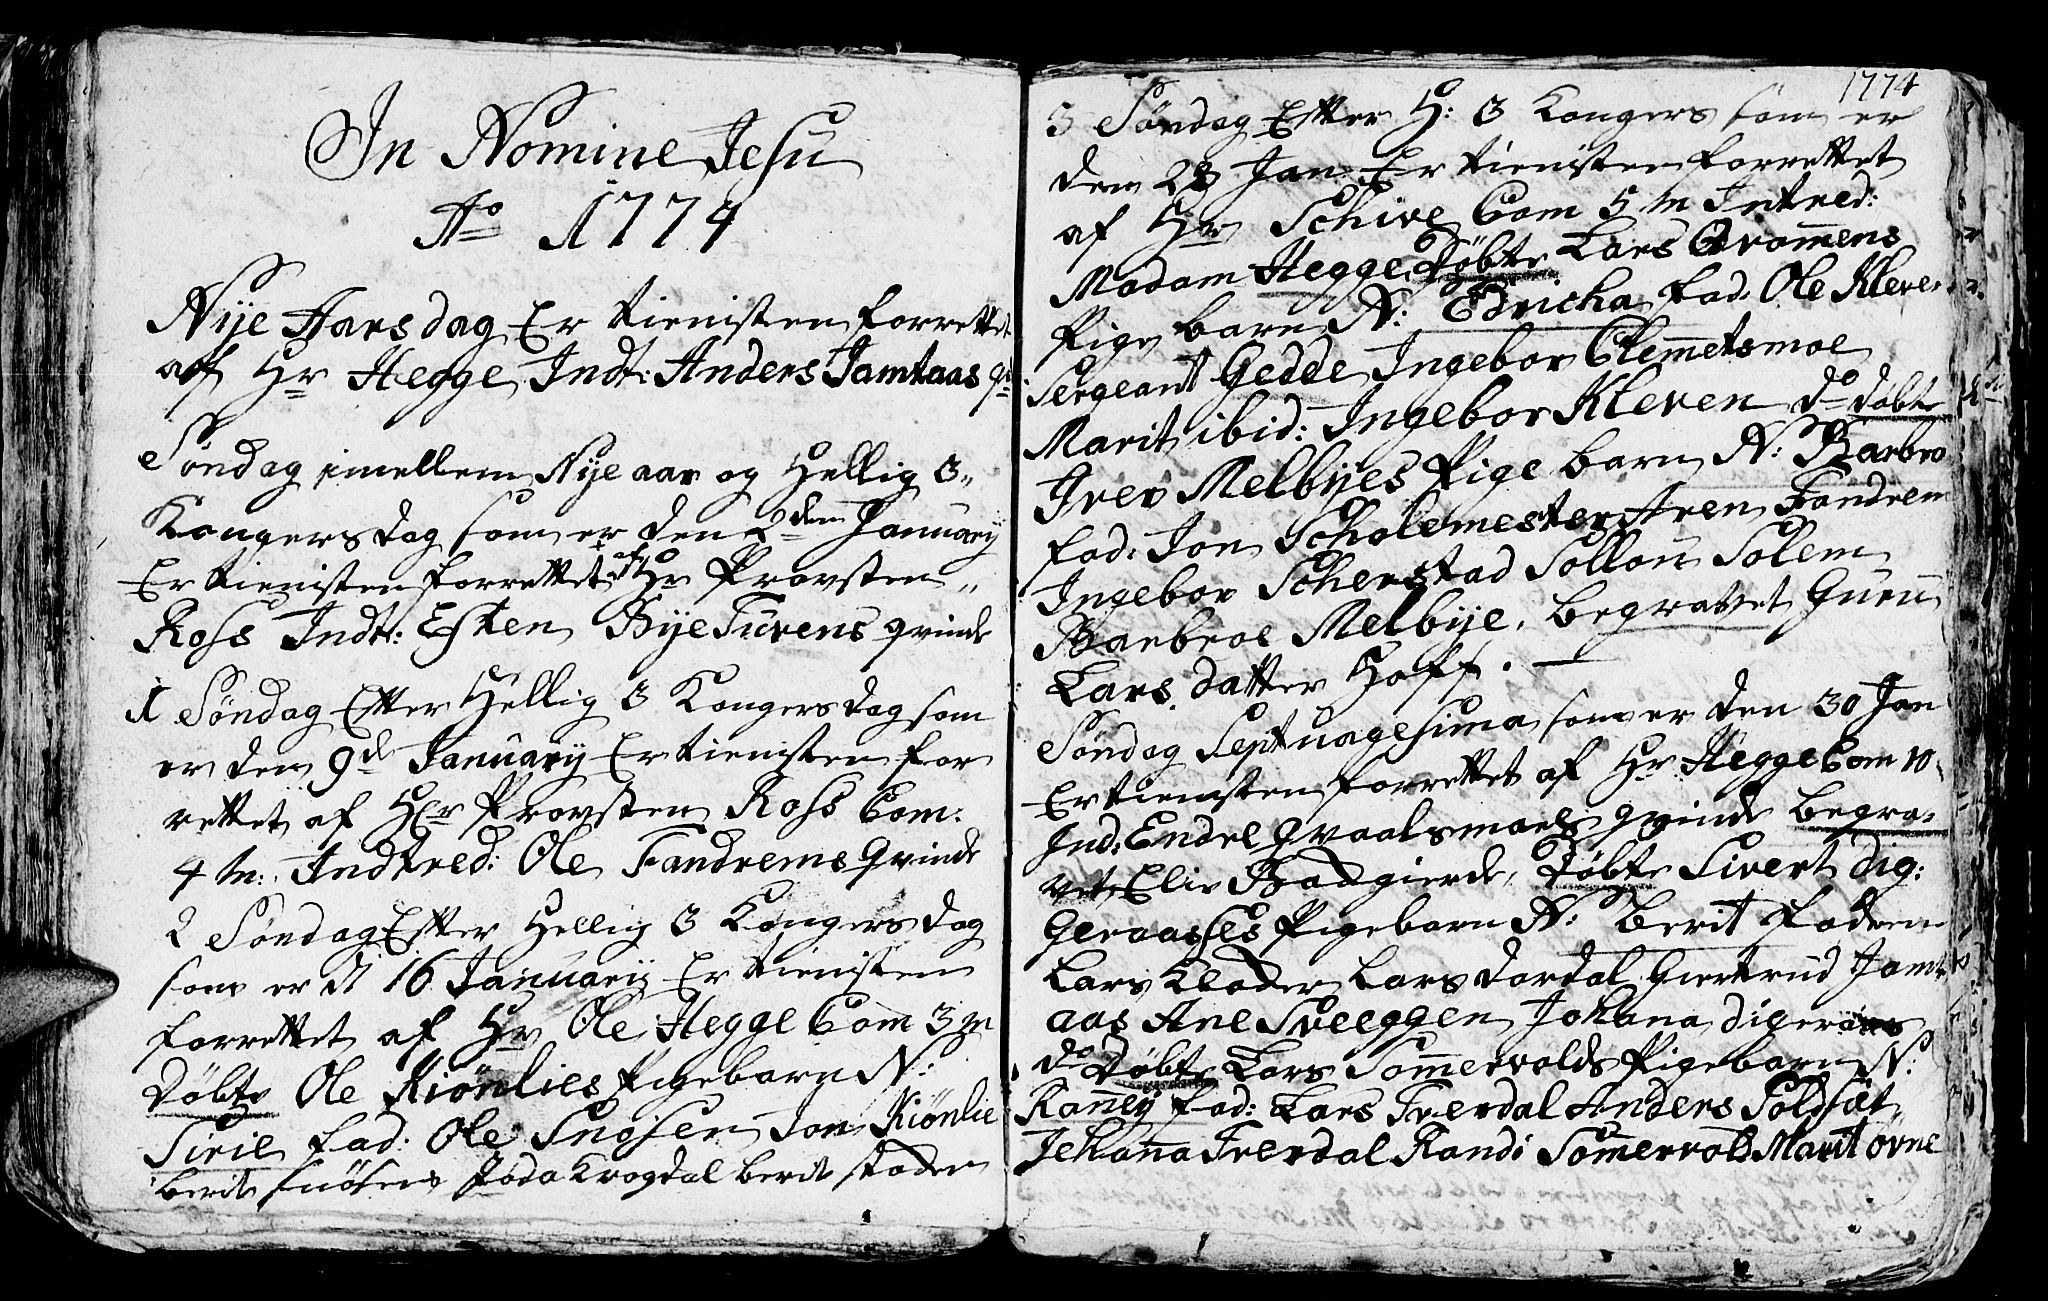 In Nomine Jesu
Ao 1774
Nÿe Aars dag Er tienisten forrettet
aff Hr Hegge Indt: Anders Jamtaas q:
Søndag imellem Nÿe aar og Hellig 3
Kongers dag som er den 2den January
Er tienisten forrettet af Hr Provsten
Ross Indt: Esten Bÿe Turens qvinde
1 Søndag Efter Hellig 3 Kongers dag som
er den 9de January Er tienisten for
rettet af Hr Provsten Ross Com:
4 M: Indtred: Ole Fandrems qvinde
2 Søndag Efter Hellig 3 Kongers dag
som er d 16 January Er tienisten
forrettet af Hr Ole Hegge Com 3 M
Døbte Ole Kiönlies Pigebarn N:
Sirie Fad: Ole Snosen Jon Kiönlie
Berit Snösen Krogdal Berit
1774
3 Søndag Efter H: 3 Kongers som er
den 23 Jan Er tienisten forrettet
af Hr Schive Com 5 M Intred:
Madam Hegge Døbte Lars Qvammens
Pige barn N: Edricha Fad: Ole Kleven
Sergeant Gedde Ingebor Clemmetsmoe
Marit ibid: Ingebor Kleven do døbte
Iver Melbÿes Pige barn N: Barbro
Fad: Jon Scholemester Aren Fandrem
Ingebor Scherstad Sollou Solem
Barbroe Melbÿe. Begravet Guru
Lars datter Hoff.
Søndag Septuagesima som er den 30 Jan
Er tienisten forrettet af Hr Hegge Com 10
Ind: Endre Gvaalsmoes qvinde Begra
vet Eliv Badgierde, Døbte Sivert dig:
Geraasses Pigebarn N: Berit Faderne
Lars Lars Dordal Giertrud Jamt
aas Ane Sveeggen Johana digeraas
do Døbte Lars Sommervolds Pigebarn N:
Ranneÿ Fad: Lars Tverdal Anders Soldsæt
Jehanna Tverdal Randi Sommervold Marit Øvne